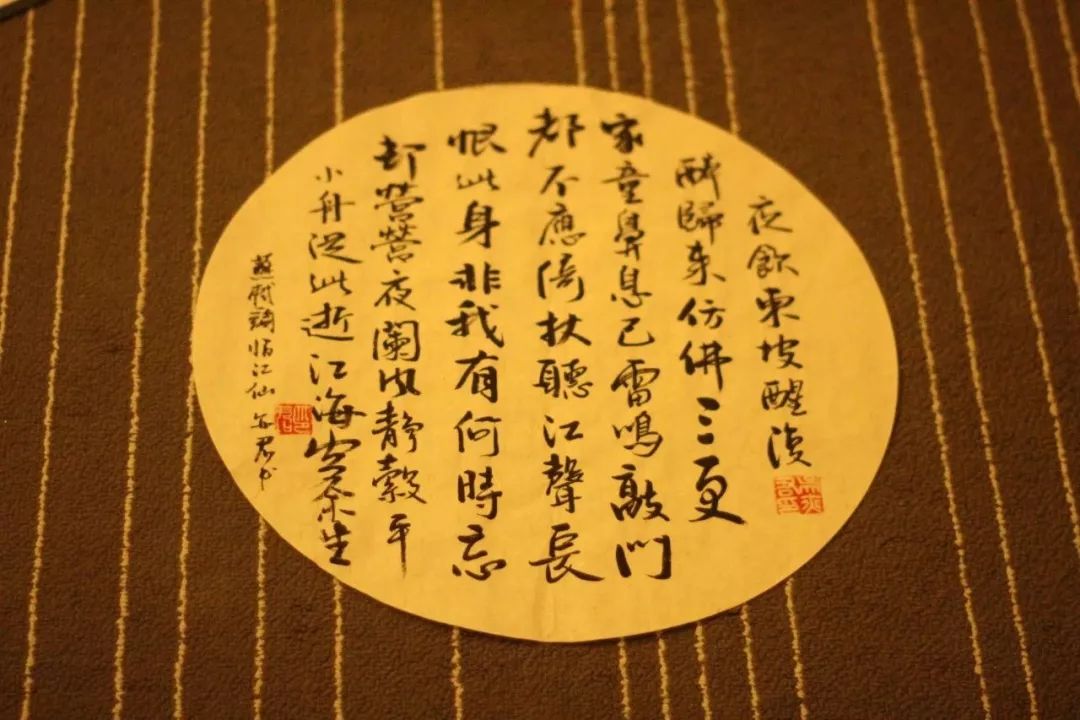 夜飲東坡醒復
醉歸来仿佛三更
家童鼻息已雷鳴敲門
都不應倚杖聽江聲長
恨此身非我有何時忘
却營營夜闌風静縠平
小舟從此逝江海寄余生
蘇軾詞臨江仙